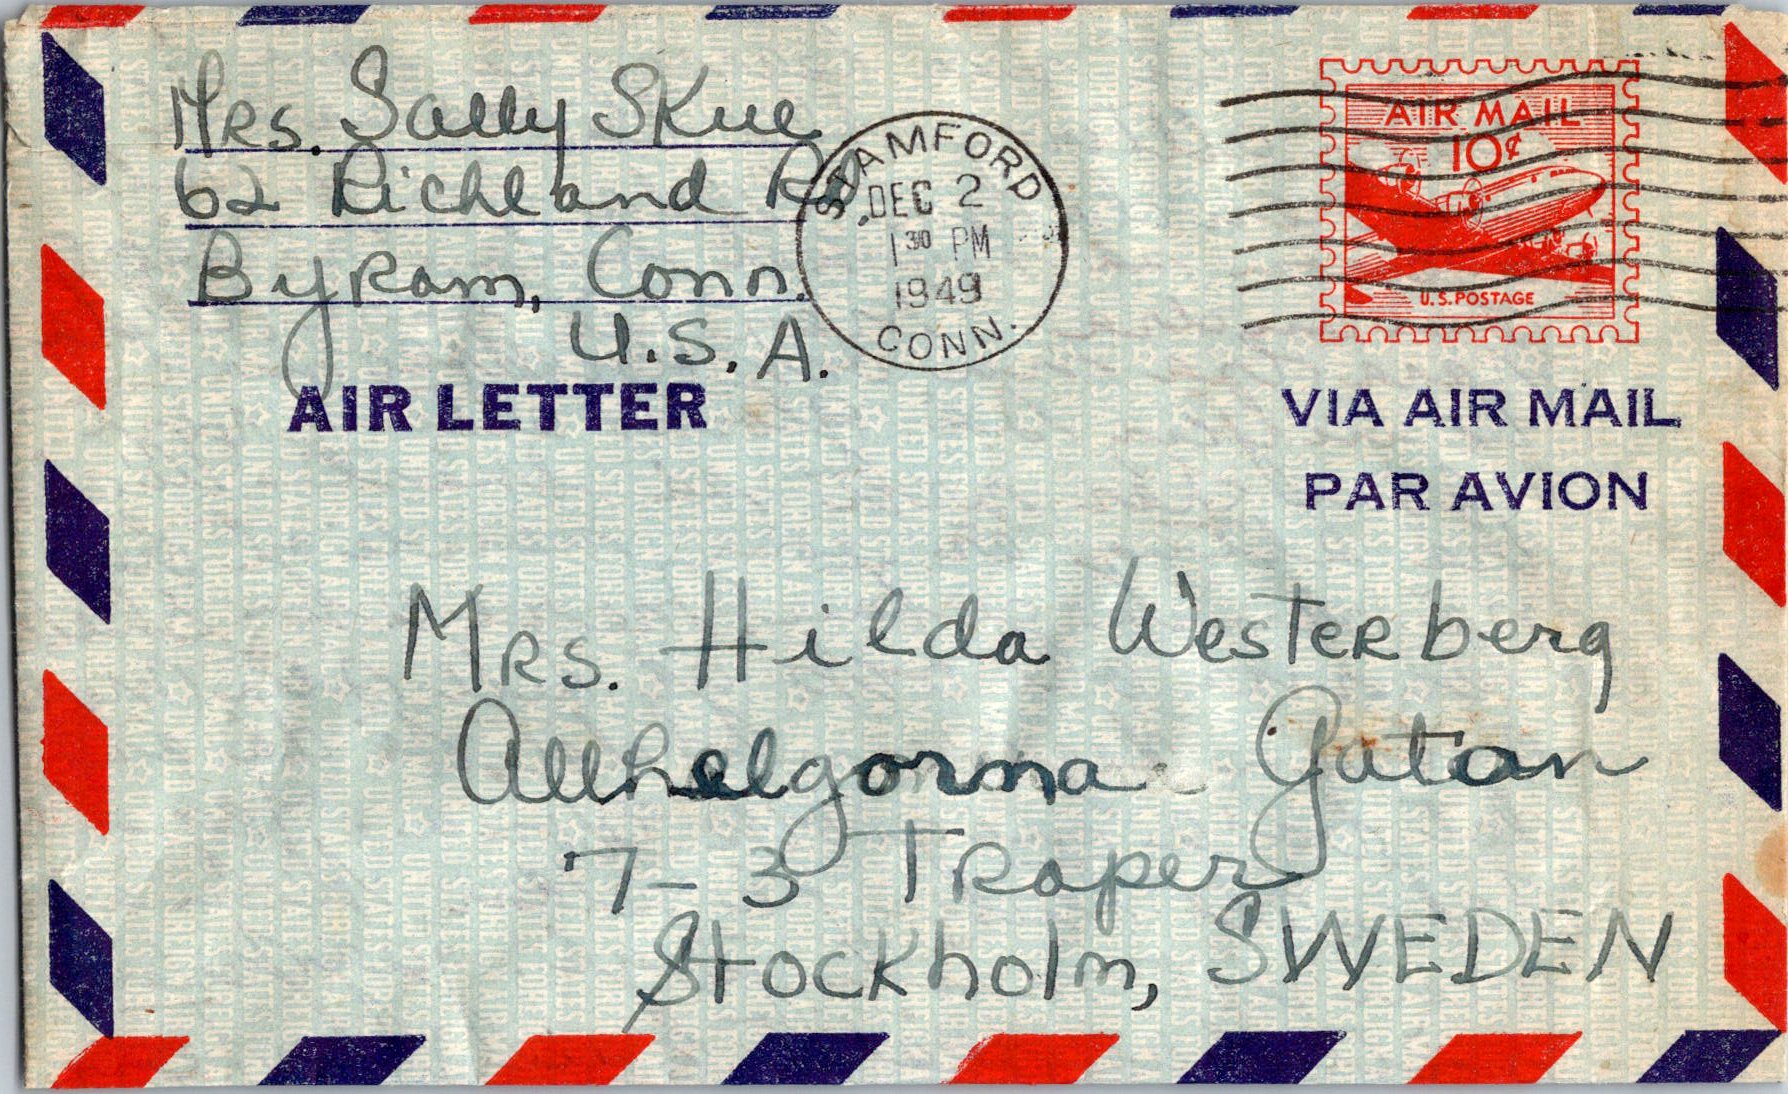 Mrs. Sally Skue
62 Richland Rd.
Byram, Conn.
U.S.A.
STAMFORD
DEC 2
1 30 PM
1949
CONN.
AIR MAIL
10¢
U.S. POSTAGE
AIR LETTER
VIA AIR MAIL
PAR AVION
Mrs. Hilda Westerberg
Allhelgorna Gatan
7-3 Traper
Stockholm, SWEDEN